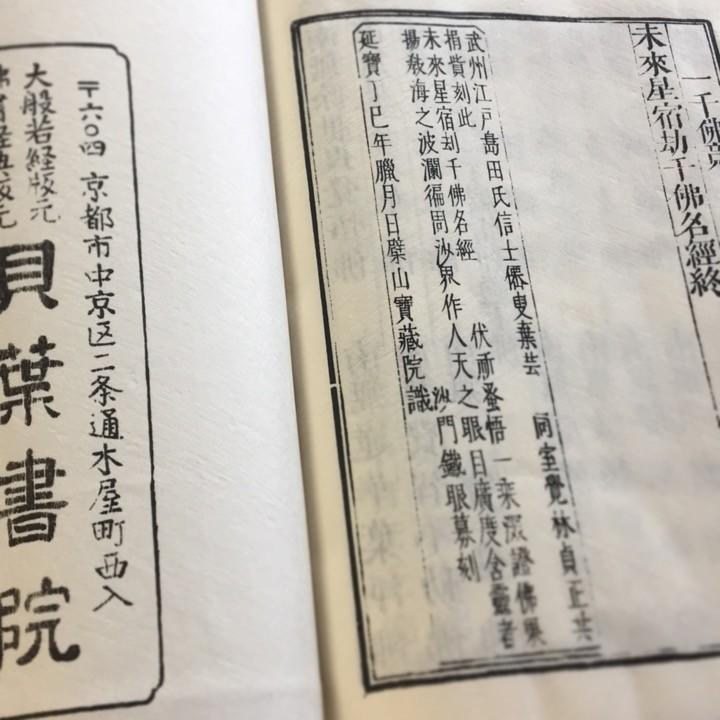 一千佛竟
未來星宿劫千佛名經終
武州江戸島田氏信士 叟棄芸 同室覺林貞正共
捐貲刻此
未來星宿刦千佛名經 伏祈蚤悟一乘深證佛果
揚敎海之波瀾徧周沙界作人天之眼目廣度含靈者
沙門鐵眼募刻
延寶丁巳年臘月日檗山寶藏院識
〒六〇四 京都市中京区二条通木屋町西入
大般若経版元
版元
貝葉書院